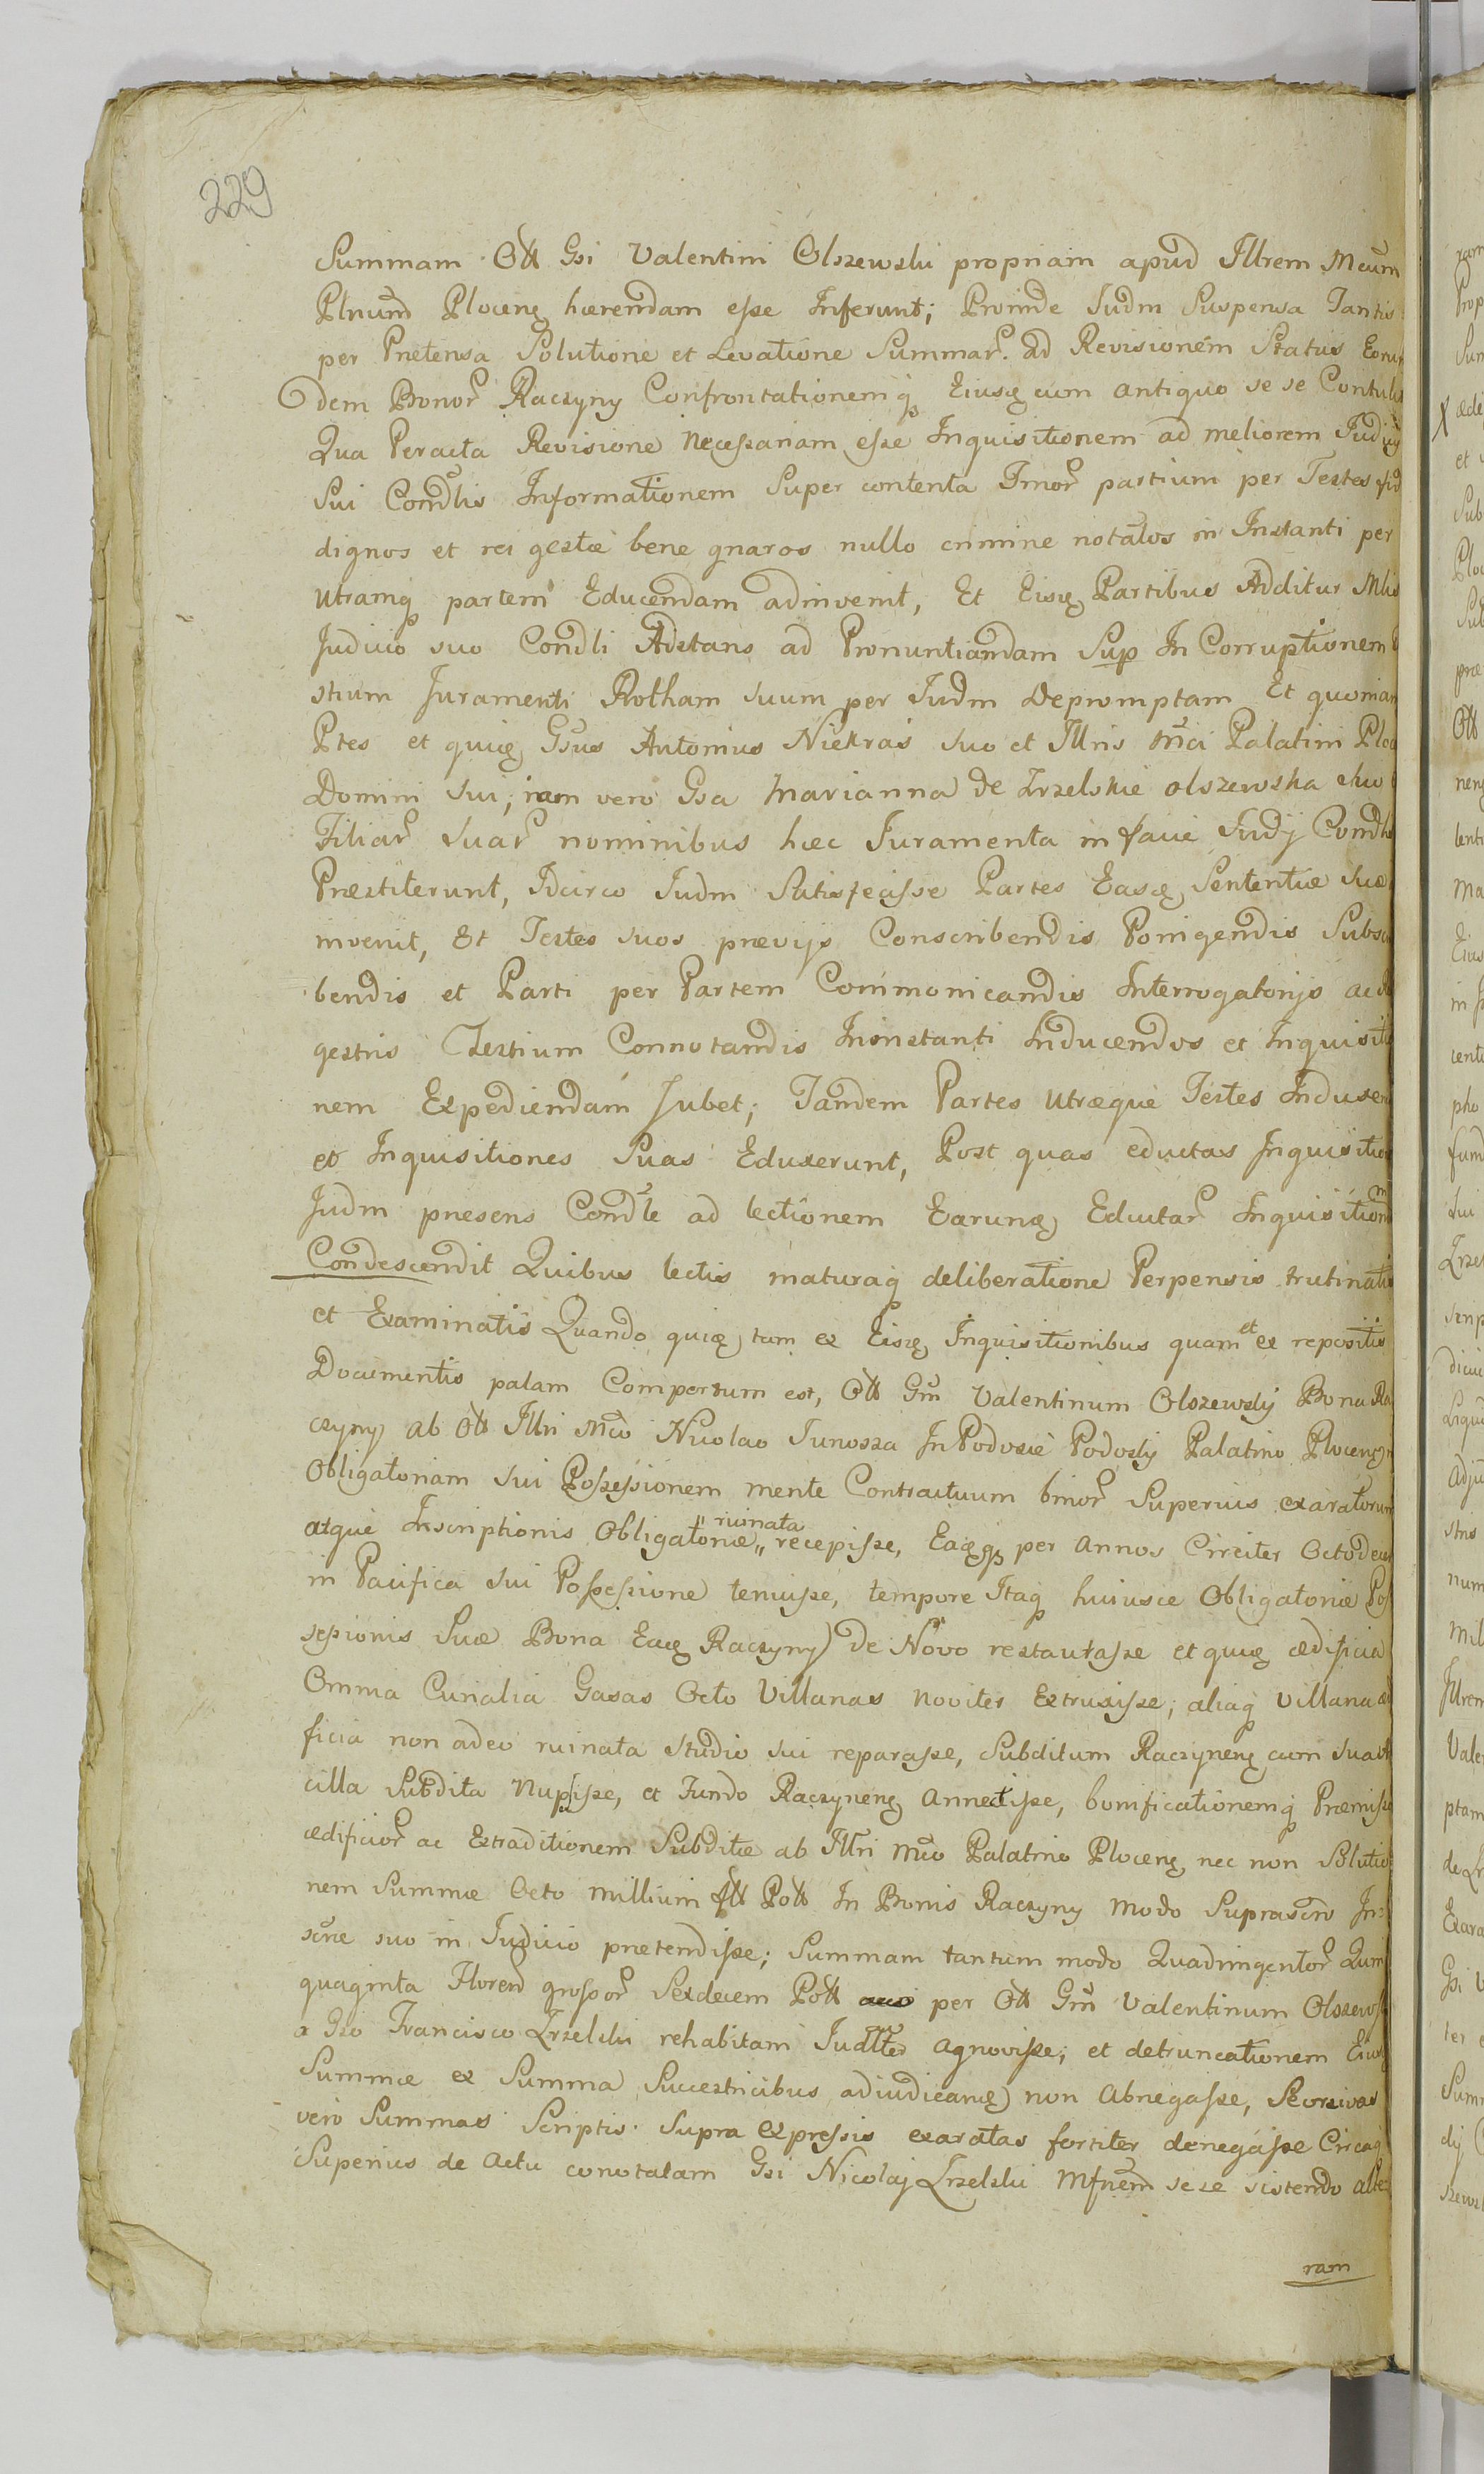 229
Summam Olł Gsi Valentini Olszewski propriam apud Illrem Mcum
Plnum Plocens hærendam esse Inferunt; Proinde Iudm Suspensa Tantis
per Prætensa Solutione et Levatione Summar. ad Revisionem Status Eorun
dem Bonor Raczyny Confrontationemq Eiusq cum antiquo se se Contulit
Qua Peracta Revisione necessariam esse Inquisitionem ad meliorem Iudicij
Sui Comdlis Informationem Super contenta Imor partium per Testes fid
dignos et rei gestæ bene gnaros nullo crimine notatos in Instanti per
utramq partem Educendam adinvenit, Et Eisq Partibus Additur Mlis
Judicio suo Condli Adstans ad Pronuntiandam Sup In Corruptionem
stium Juramenti Rotham suum per Iudm depromptam Et quoniam
Ptes et quiq Gsus Antonius Niekras suo et Illris Mci Palatini Ploc
Domini sui, iam vero Gsa Marianna de Lrzelskie olszewska suo
Filiar suar nominibus hæc Juramenta in facie Iudij Comdlis
Præstiterunt, Idcirco Iudm Satisfecisse Partes Easq Sententiæ suæ
invenit, Et Testes suos prævijs Conscribendis Porrigendis Subscri
bendis et Parti per Partem Commonicandis Interrogatorijs ac
gestris Testium Connotandis Ininstanti Inducendos et Inquisitio
nem Expediendam Jubet; Tandem Partes utræque Testes Induxer
et Inquisitiones Suas Eduxerunt, Post quas eductas Inquisitio
Judm præsens Comdle ad lectionem Earunq Eductar Inquisitionm
Condescendit Quibus lectis maturaq deliberatione Perpensis trutinatis
et Examinatis Quando quiq tam ex Eisq Inquisitionibus quam et ex repositis
Documentis palam Compertum est, Olł Gm Valentinum Olszewsky Bona Ra
czyny ab Olł Illri Mco Nicolao Junosza In Podosie Podosky Palatino Plocens
Obligatoriam sui Possessionem mente Contractuum binor Superius exaratorum
atque Inscriptionis Obligatoriæ ,, ruinata ,, recepisse, Eaqq per Annos Circiter Octodecem
in Pacifica sui Possessione tenuisse, tempore Itaq huiusce Obligatoriæ Pos
sessionis Suæ Bona Eaq Raczyny de Novo restaurasse et quiq ædificia
Omnia Curialia Gasas Octo Villanas noviter Extruxisse; aliaq villana ædi
ficia non adeo ruinata studio sui reparasse, Subditum Raczynens cum sua
cilla Subdita Nupsisse, et Fundo Raczynens Annexisse, bonificationemq Præmiss
ædificior ac Extraditionem Subditæ ab Illri Mco Palatino Plocens nec non Solutio
nem Summæ Octo millium fłł Połł In Bonis Raczyny modo Suprascro In=
scræ suo in Judicio prætendisse; Summam tantum modo Quadringentor Quin
quaginta Floren grossor Sexdecem Połł per Olł Gm Valentinum Olszews
a Gso Francisco Lrzelski rehabitam Judltter agnovisse; et detruncationem Eius
Summæ ex Summa Succestricibus adiudicanq non abnegasse, Seorsivas
vero Summas Scriptis Supra Expressis exaratas fortiter denegasse Circaq
Superius de Actu conotatam Gsi Nicolaj Lrzelski Mfnem sese sistendo alte
ram